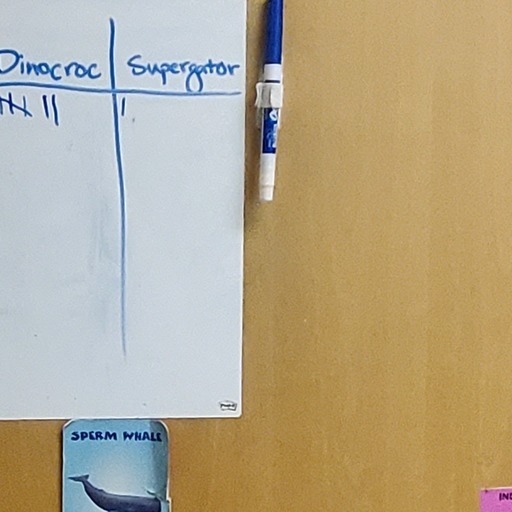 Dinocroc Supergator
SPERM WHALE